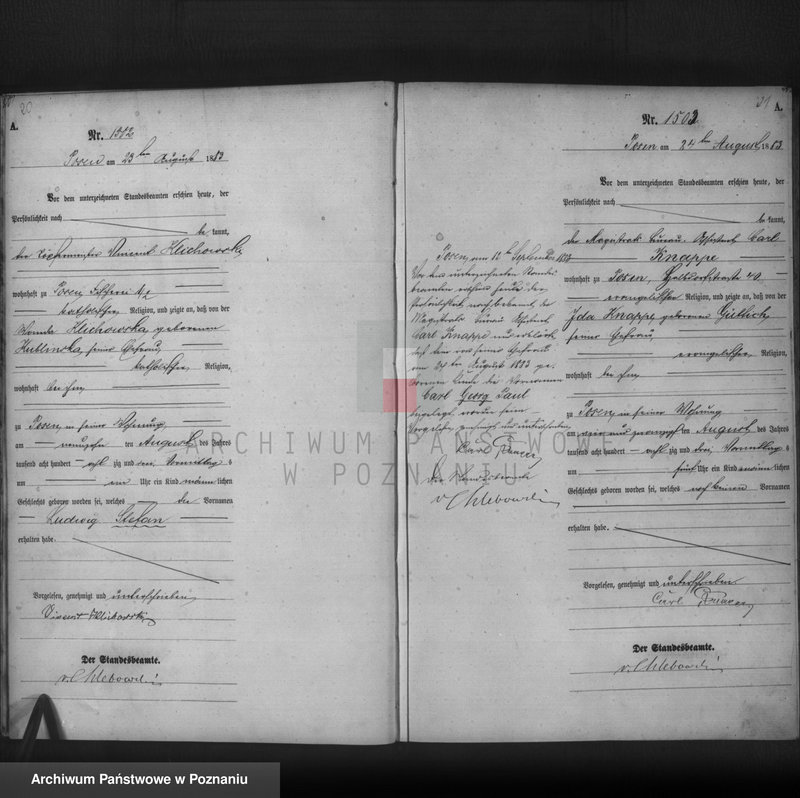 20
A.
Nr. 1502
Posen am 23ten August 1883
Vor dem unterzeichneten Standesbeamten erschien heute, der
Persönlichkeit nach
bekannt,
der Vincent Klichowski
wohnhaft zu Posen
katholischer Religion, und zeigte an, daß von der
Klichowska geborenen
seiner Ehefrau
katholischer Religion,
wohnhaft bei ihm
zu Posen in seiner Wohnung
am ten August des Jahres
tausend acht hundert achtzig und drei Vormittags
um ein Uhr ein Kind männlichen
Geschlechts geboren worden sei, welches die Vornamen
Ludwig Stefan
erhalten habe.
Vorgelesen, genehmigt und unterschrieben
Vincent Klichowski
Der Standesbeamte.
v. Chlebowski
Posen, am 12ten September 1883
Vor dem unterzeichneten Standes
beamten erschien heute der
Persönlichkeit nach bekannt, der
Magistrats Bureau Assistent
Carl Knappe und erklärte
daß dem von seiner Ehefrau
am 24ten August 1883 ge
borenen Kinde die Vornamen
Carl Georg Paul
beigelegt worden seien
Vorgelesen genehmigt und unterschrieben
Carl
Der Standesbeamte
v. Chlebowski
21
A.
Nr. 1503
Posen am 24ten August 1883
Vor dem unterzeichneten Standesbeamten erschien heute, der
Persönlichkeit nach
bekannt,
der Magistrats Bureau Assistent Carl
Knappe
wohnhaft zu Posen,
evangelischer Religion, und zeigte an, daß von der
Ida Knappe geborenen
seiner Ehefrau
evangelischer Religion,
wohnhaft bei ihm
zu Posen in seiner Wohnung
am vier und zwanzigsten August des Jahres
tausend acht hundert achtzig und drei, Vormittags
um fünf Uhr ein Kind männlichen
Geschlechts geboren worden sei, welches noch keinen Vornamen
erhalten habe.
Vorgelesen, genehmigt und unterschrieben
Carl
Der Standesbeamte.
v. Chlebowski
ARCHIWUM PAŃSTWOWE
W POZNANIU
Archiwum Państwowe w Poznaniu